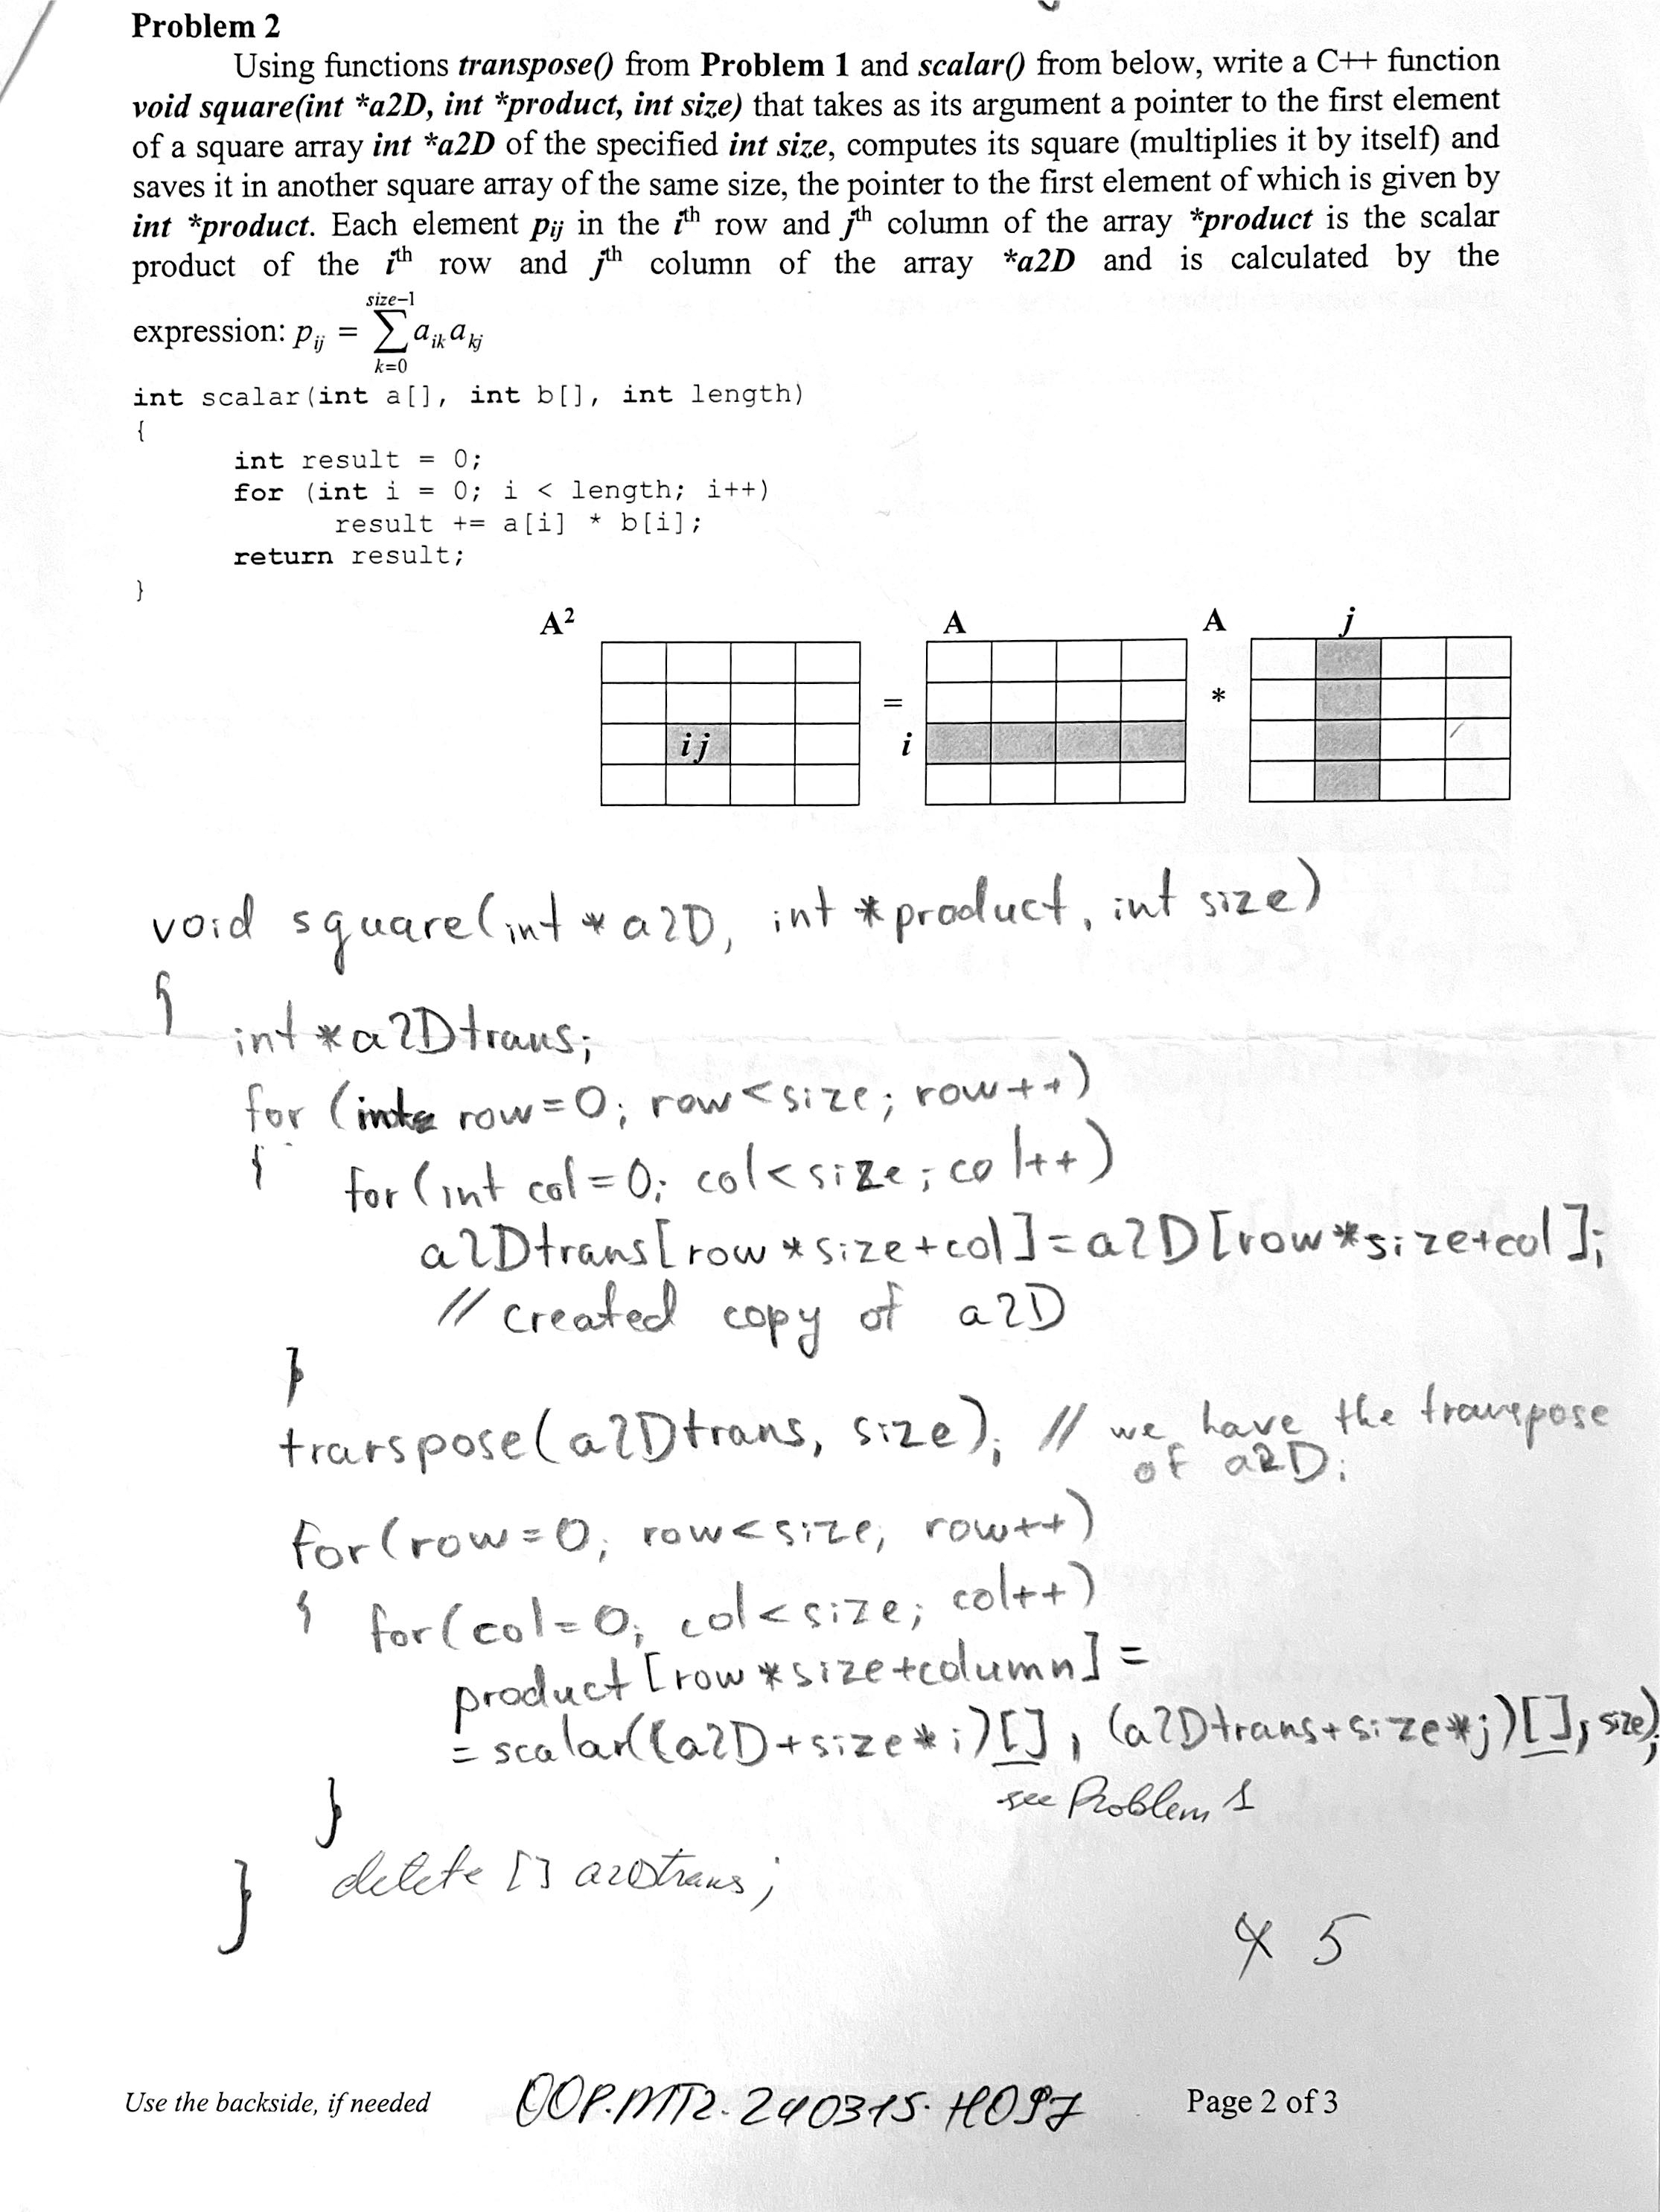 Problem 2
Using functions transpose() from Problem 1 and scalar() from below, write a C++ function
void square(int *a2D, int *product, int size) that takes as its argument a pointer to the first element
of a square array int *a2D of the specified int size, computes its square (multiplies it by itself) and
saves it in another square array of the same size, the pointer to the first element of which is given by
int *product. Each element pij in the ith row and jth column of the array *product is the scalar
product of the ith row and jth column of the array *a2D and is calculated by the
size-1
expression: pij = ∑ aik akj
k=0
int scalar(int a[], int b[], int length)
{
int result = 0;
for (int i = 0; i < length; i++)
result += a[i] * b[i];
return result;
}
A² A A j
= *
ij i
void square(int * a2D, int * product, int size)
{
int * a2Dtrans;
for (int row=0; row<size; row++)
{ for(int col=0; col<size; col++)
a2Dtrans[row * size+col]=a2D[row*size+col];
// created copy of a2D
}
transpose(a2Dtrans, size); // we have the transpose
of a2D;
for(row=0; row<size; row++)
{ for(col=0; col<size; col++)
product[row * size+column] =
= scalar((a2D+size*i)[], (a2Dtrans+size*j)[], size);
see Problem 1
}
delete [] a2Dtrans;
}
4 5
Use the backside, if needed OOP.MT2.240315.H097 Page 2 of 3